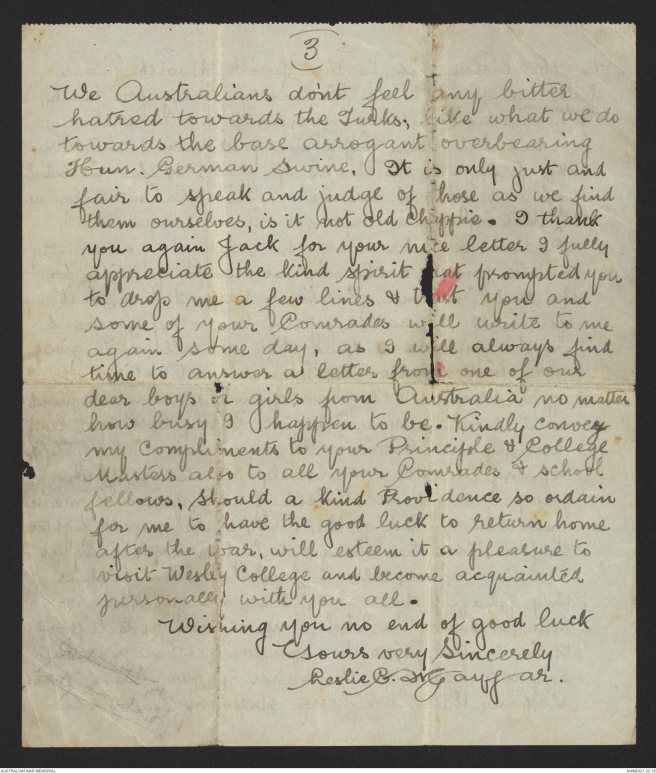 3
We Australians don't feel any bitter
hatred towards the Turks, like what we do
towards the base arrogant overbearing
Hun. German Swine. It is only just and
fair to speak and judge of those as we find
them ourselves, is it not old Chappie. I thank
you again Jack for your nice letter I fully
appreciate the kind spirit that prompted you
to drop me a few lines & trust you and
some of your Comrades will write to me
again some day, as I will always find
time to answer a letter from one of our
dear boys or girls from Australia no matter
how busy I happen to be. Kindly convey
my compliments to your Principle & College
Masters also to all your Comrades & school
fellows, should a kind Providence so ordain
for me to have the good luck to return home
after the war, will esteem it a pleasure to
visit Wesley College and become acquainted
personally with you all.
Wishing you no end of good luck
Yours very Sincerely
Leslie C.
AUSTRALIAN WAR MEMORIAL